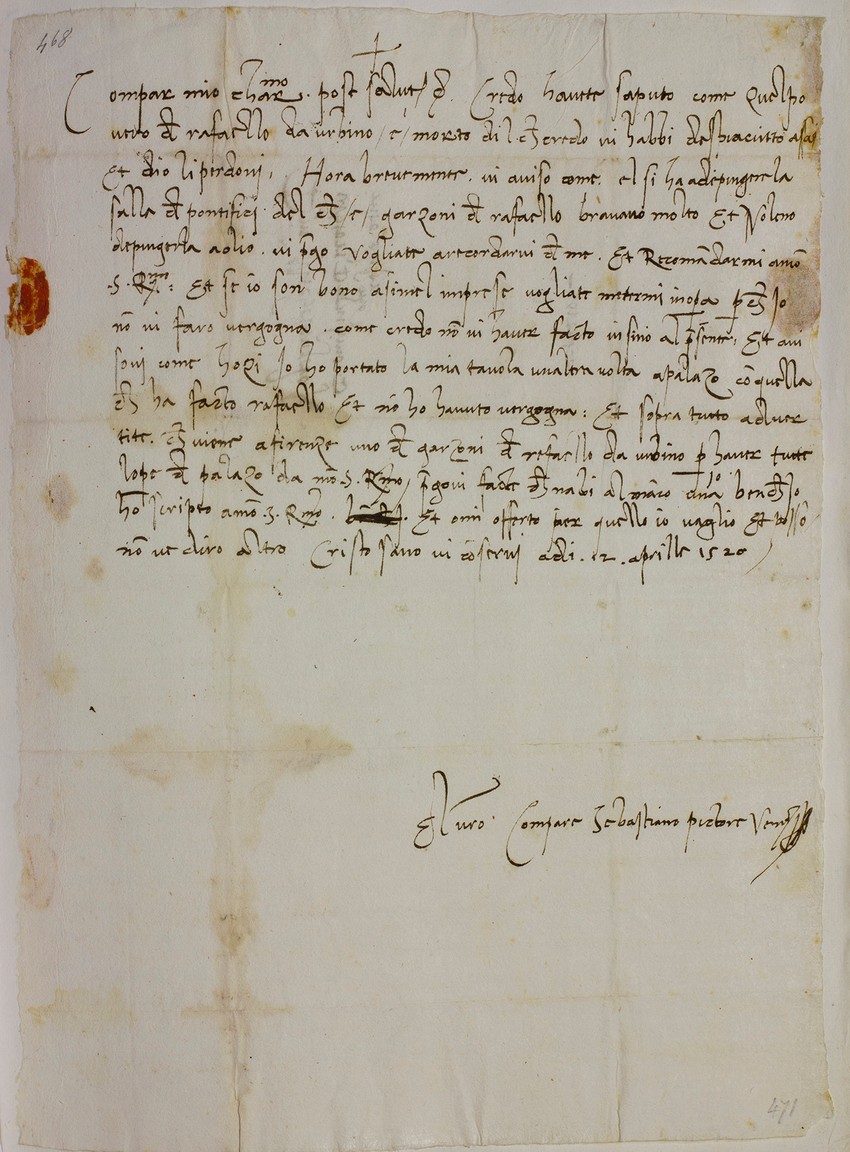 468
Compar mio char.mo post salute / &. Credo havete saputo come quel po
vero de rafaello da urbino / e / morto di che credo vi habbi despiaciuto assai
Et dio li perdoni, Hora brevemente. vi aviso come. el si ha a depingere la
salla de pontifici. del che / e / garzoni de rafaello bravano molto et voleno
depingerla a olio. vi prego vogliate arecordarvi de me. Et Recomãdarmi a mõ
.S. R.mo: Et se io son bono a simel imprese vogliate metermi in opa pche Io
nõ vi faro vergogna. come credo nõ vi haver facto in sino al psente, Et avi
sovi come hogi Io ho portato la mia tavola unaltra volta a palazo cõ quella
che ha facto rafaello Et nõ ho havuto vergogna: Et sopra tutto adver
tite. che viene a firenze uno de garzoni de rafaello da urbino p haver tutte
lope de palazo da mõ.S. R.mo, pgovi facte che nabi al mãco ben che Io
ho scripto a mõ.S. R.mo. Et omi offerto per quello io vaglio Et posso
nõ ve diro altro Cristo sano vi cõservi adi. 12. aprille 1520
El vro Compare Sebastiano pictore
471